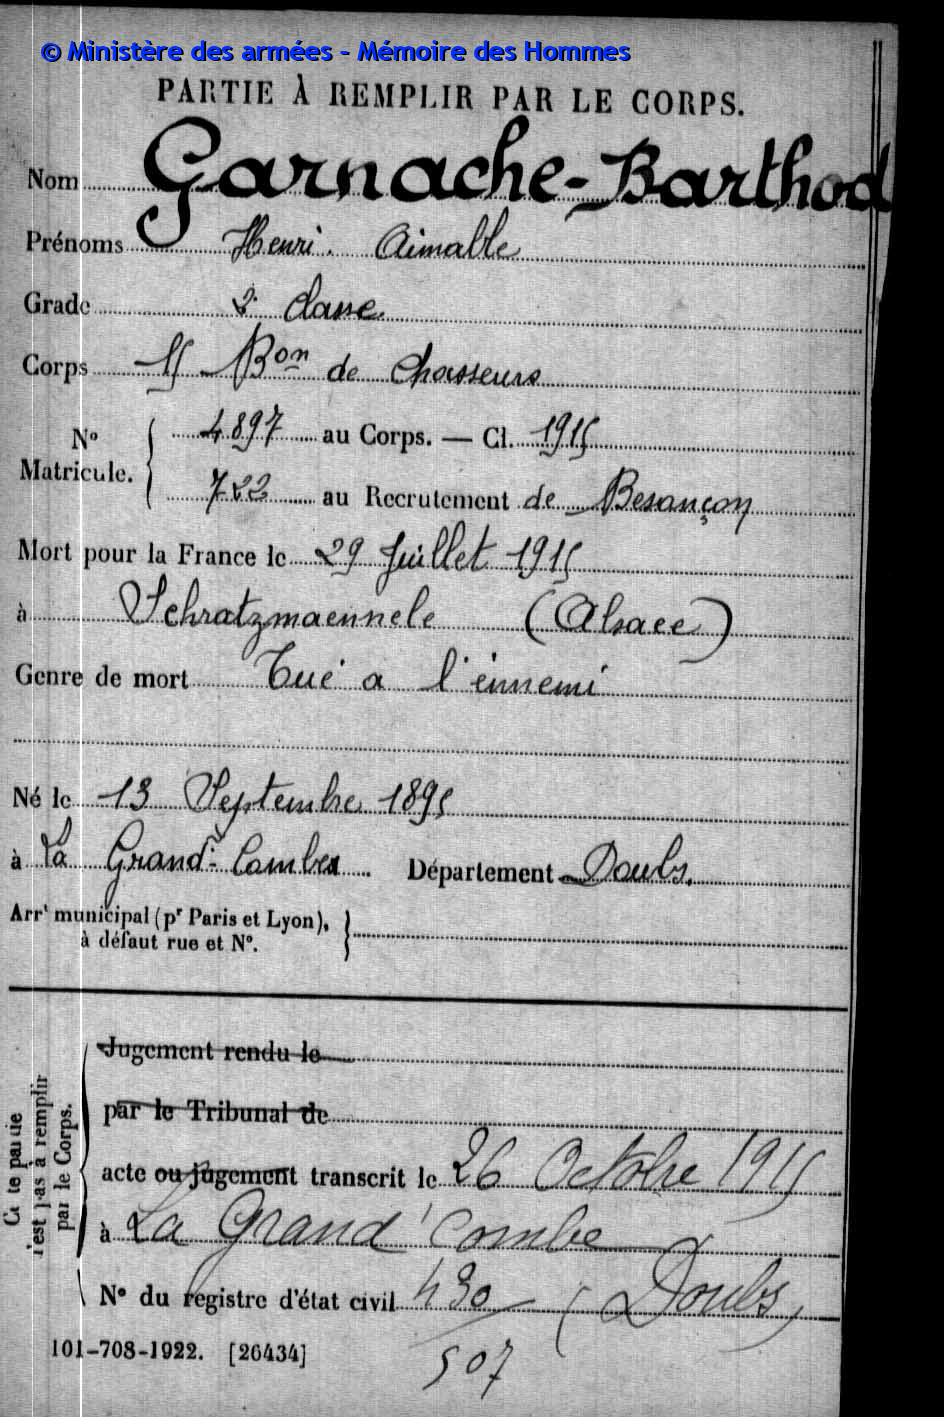 © Ministère des armées - Mémoire des Hommes
PARTIE À REMPLIR PAR LE CORPS.
Nom Garnache-Barthod
Prénoms Henri. Aimable
Grade 2e classe
Corps 15 Bon de Chasseurs
No Matricule. 4897 au Corps. — Cl. 1915
722 au Recrutement de Besançon
Mort pour la France le 29 Juillet 1915
à Schratzmaennele (Alsace)
Genre de mort Tué a l'ennemi
Né le 13 Septembre 1895
à La Grand-Combe Département Doubs.
Arrt municipal (pr Paris et Lyon),
à défaut rue et No.
Cette partie
n'est pas à remplir
par le Corps.
Jugement rendu le
par le Tribunal de
acte ou jugement transcrit le 26 Octobre 1915
à La Grand'Combe
No du registre d'état civil 430 (Doubs)
101-708-1922. [26434] 507